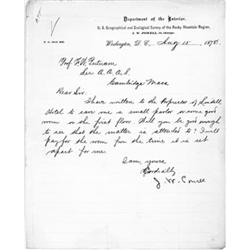 Department of the Interior,
U. S. Geographical and Geological Survey of the Rocky Mountain Region,
J. W. POWELL in charge.
Washington, D. C., Aug 15 1878.
Prof F. W. Putnam
Sec A. A. A. S.
Cambridge Mass
Dear Sir.
I have written to the Proprietor of Lindell
Hotel to save me a small parlor or one good
room on the first floor. Will you be good enough
to see that the matter is attended to? I will
pay for the room for the time it is set
apart for me.
I am, yours
Cordially
J. W. Powell